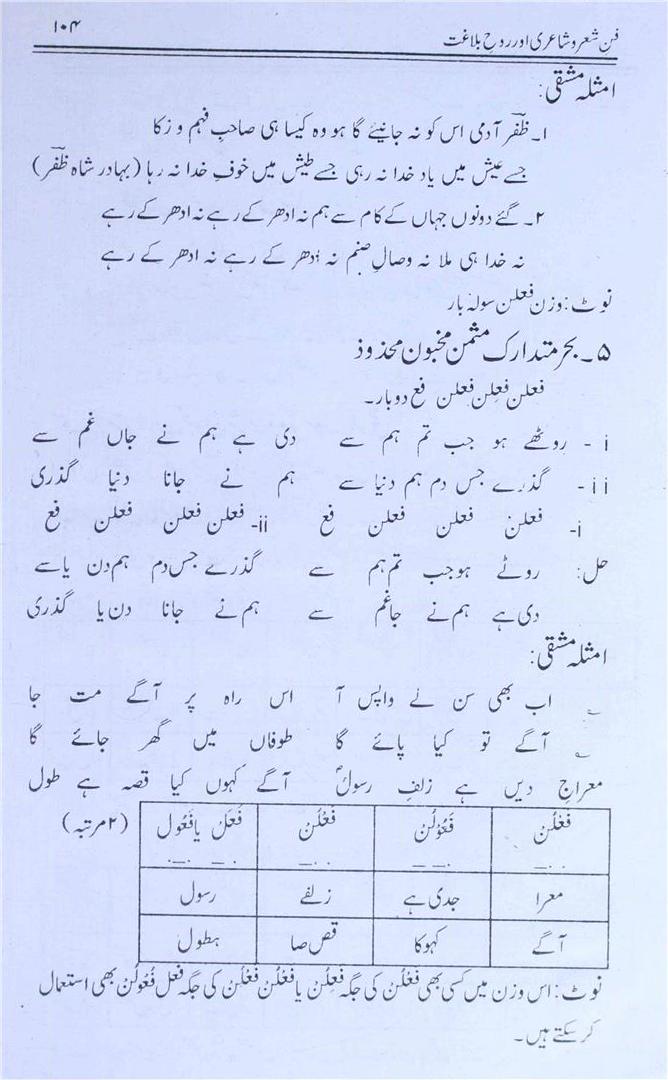 ۱۰۴
فن شعر و شاعری اور روحِ بلاغت
امثلہ مشقی:
۱۔ ظفر آدمی اس کو نہ جانیئے گا ہو وہ کیسا ہی صاحبِ فہم و زکا
جسے عیش میں یاد خدا نہ رہی جسے طیش میں خوفِ خدا نہ رہا (بہادر شاہ ظفر)
۲۔ گئے دونوں جہاں کے کام سے ہم نہ ادھر کے رہے نہ ادھر کے رہے
نہ خدا ہی ملا نہ وصالِ صنم نہ اُدھر کے رہے نہ ادھر کے رہے
نوٹ: وزن فعلن سولہ بار
۵۔ بحر متدارک مثمن مخبون محذوذ
فعلن فعِلن فعلن فع دوبار۔
i - روٹھے ہو جب تم ہم سے دی ہے ہم نے جاں غم سے
ii - گذرے جس دم ہم دنیا سے ہم نے جانا دنیا گذری
i- فعلن فعلن فعلن فع ii- فعلن فعلن فعلن فع
حل: روٹے ہو جب تم ہم سے گذرے جس دم ہم دن یا سے
دی ہے ہم نے جا غم سے ہم نے جانا دن یا گذری
امثلہ مشقی:
؎ اب بھی سن نے واپس آ اس راہ پر آگے مت جا
؎ آگے تو کیا پائے گا طوفاں میں گھر جائے گا
معراجِ دیں ہے زلفِ رسولؐ آگے کہوں کیا قصہ ہے طول
فَعْلُنْ فَعُوْلُنْ فَعْلُنْ فَعَلْ یا فَعُول (۲ مرتبہ)
معرا جدی ہے زلفے رسول
آگے کہوکا قص صا ہطول
نوٹ: اس وزن میں کسی بھی فَعْلُنْ کی جگہ فَعِلُنْ یا فَعْلُنْ فَعْلُنْ کی جگہ فعل فَعُولُنْ بھی استعمال
کرسکتے ہیں۔